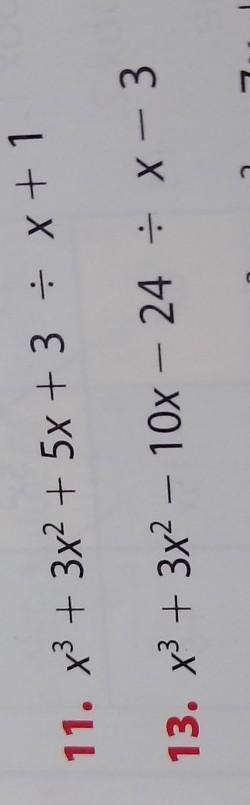 11. x³ + 3x² + 5x + 3 ÷ x + 1
13. x³ + 3x² − 10x − 24 ÷ x − 3